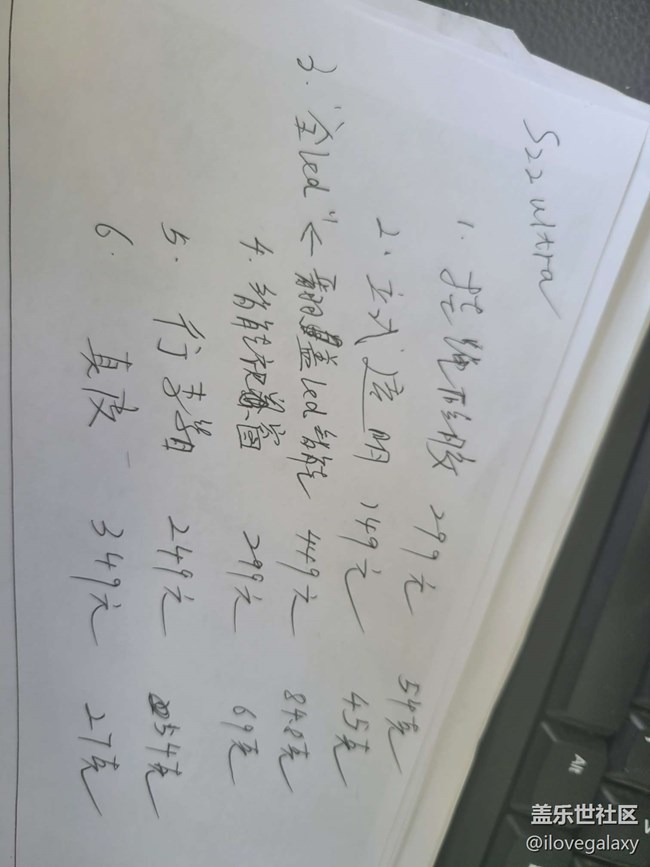 S22 ultra
1. 挂绳硅胶 299元 54克
2. 立式透明 149元 45克
3. "全led" ← 翻盖led智能 449元 84.8克
4. 智能视窗 299元 69克
5. 行李箱 249元 54克
6. 真皮 349元 27克
Alt
盖乐世社区
@ilovegalaxy